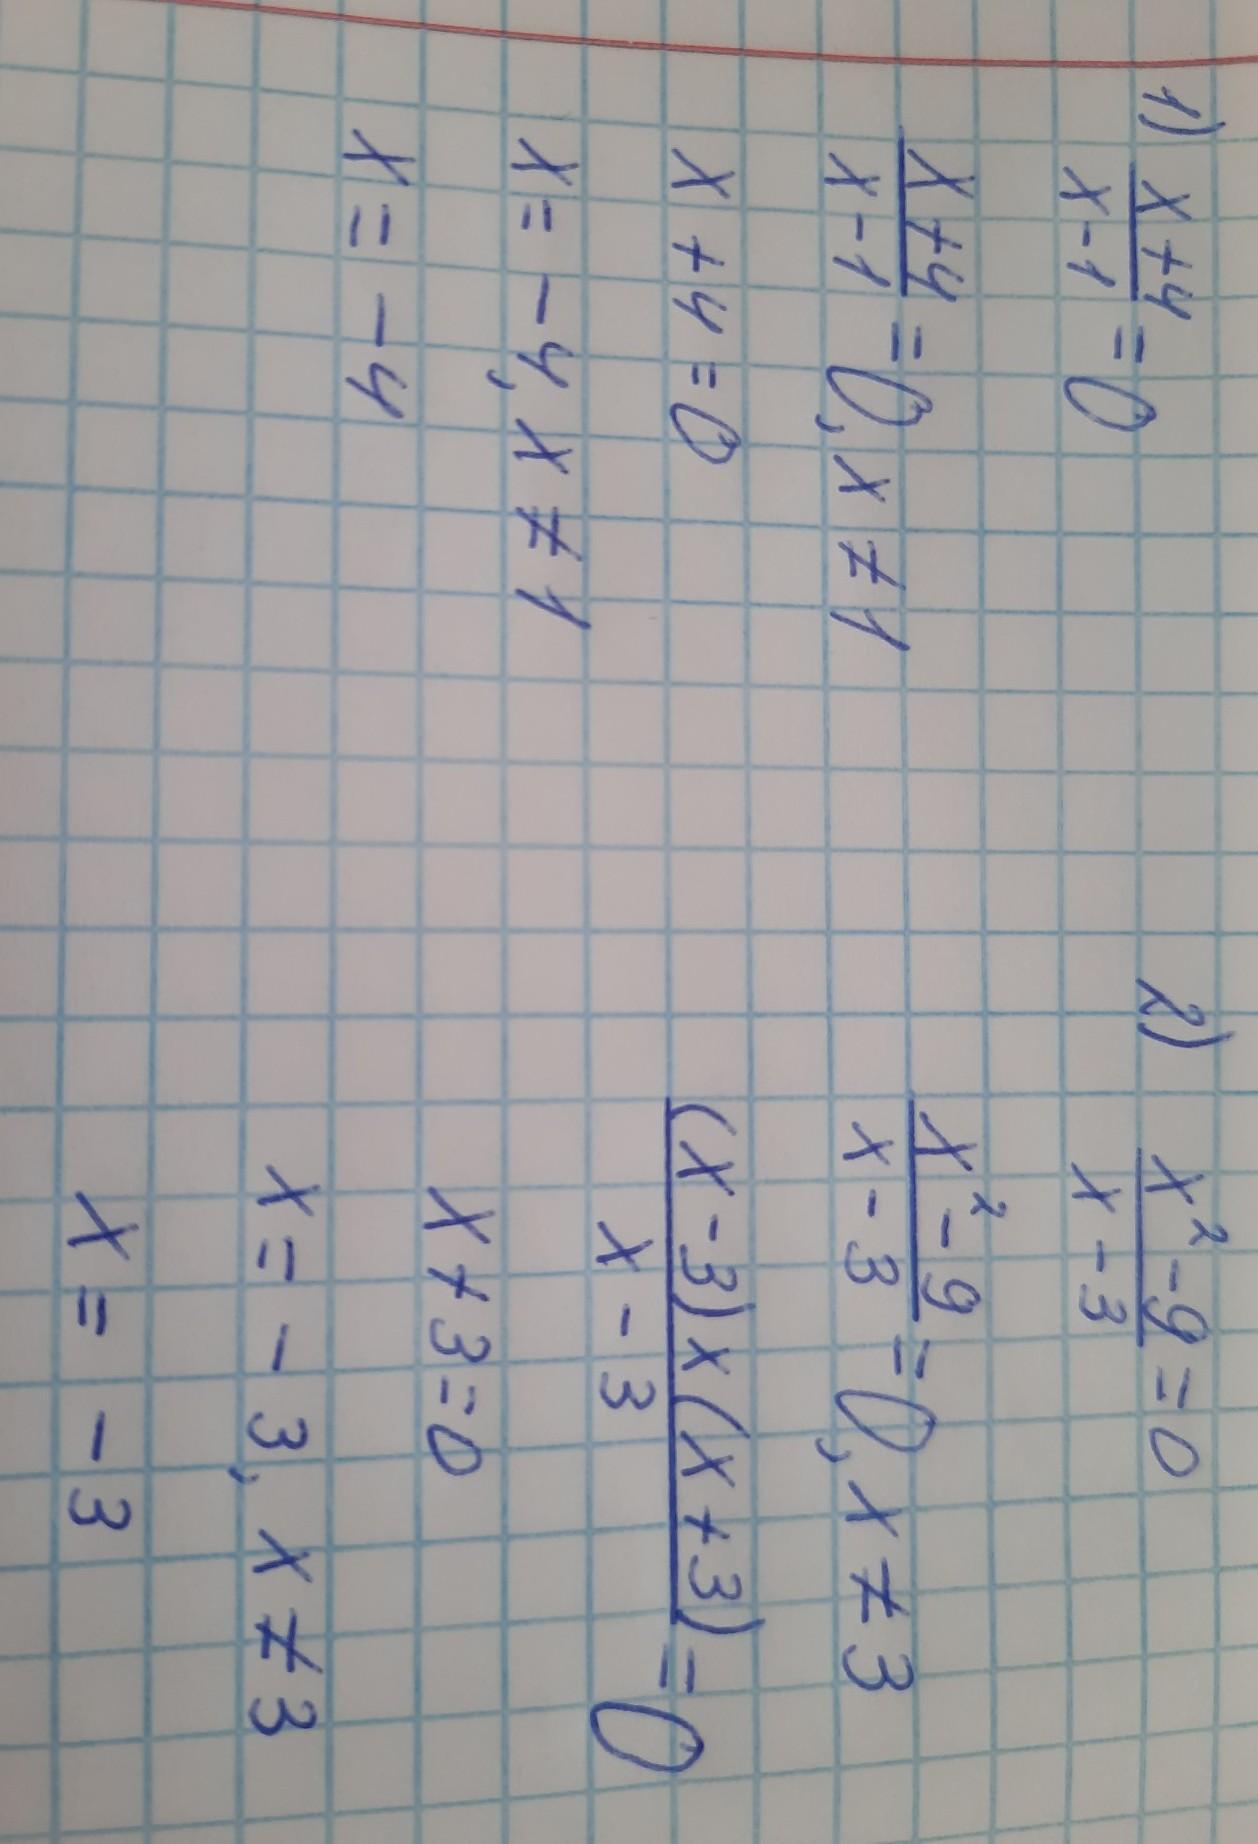 1) (x+4)/(x-1) = 0
(x+4)/(x-1) = 0, x ≠ 1
x + 4 = 0
x = -4, x ≠ 1
x = -4
2) (x²-9)/(x-3) = 0
(x²-9)/(x-3) = 0, x ≠ 3
((x-3)x(x+3))/(x-3) = 0
x + 3 = 0
x = -3, x ≠ 3
x = -3